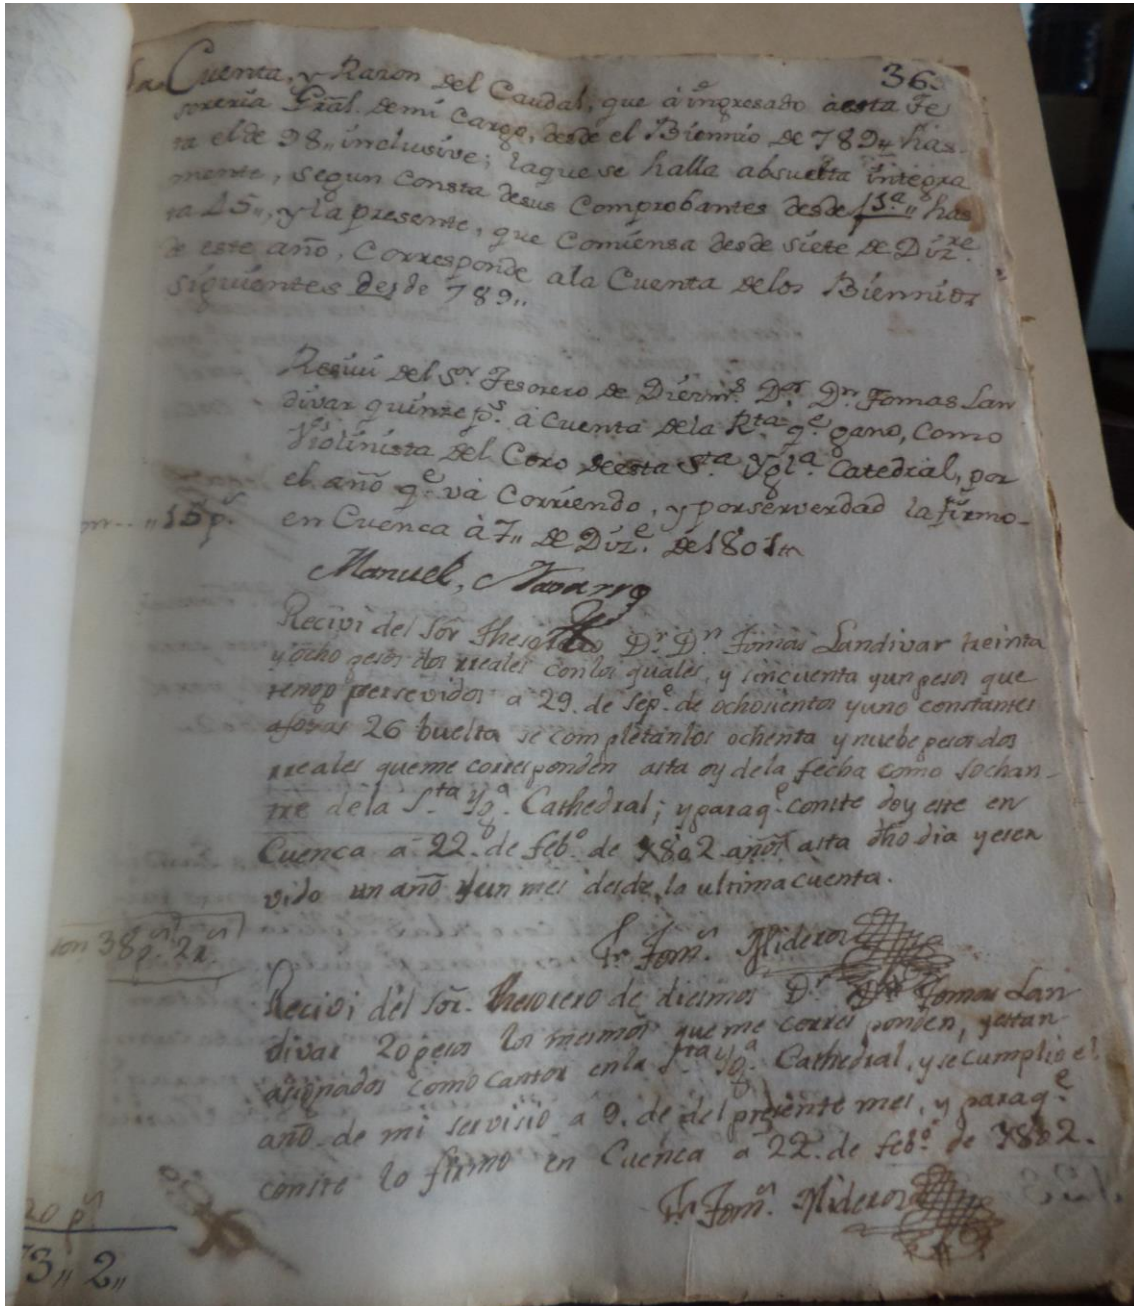 36
La Cuenta, y Razon del Caudal, que à ingresado àesta Te
soreria Gral. demi cargo, desde el Biennio de 789,, has
ta el de 98,, inclusive; laque se halla absuelta integra
mente, segun consta desus Comprobantes desde has
ta 25,, y la presente, que Comiensa desde siete de Diz.re
de este año, Corresponde ala Cuenta delos Biennios
siguientes desde 789,,
Resiví del S.or Tesorero de Diezm.s D.or D.n Tomas Lan
divar quinze p.s à cuenta dela R.ta q.e gano, como
Violinista del Coro deesta S.ta Ygl.a Catedral, por
el año q.e và Corriendo, y porserverdad la firmo
en Cuenca à 7,, de Diz.e de 1801,,
,, 15 p.s
Manuel, Navarro
Recivi del Sõr thesorero D.r D.n Tomas Landivar treinta
y ocho pesos dos rreales conlos quales, y sincuenta yun pesos que
tengo persevidos a 29. de Sep.e de ochosientos yuno constantes
afoxas 26 buelta se completanlos ochenta y nuebe pesos dos
rreales queme corresponden asta oy dela fecha como sochan-
tre dela S.ta Yg.a Cathedral; y paraq.e conste doy este en
Cuenca a 22. de feb.o de 1802 años asta dho dia yeser
vido un año yun mes desde la ultima cuenta.
son 38 p.s 2 r.s
Fr. Tom.s Mideros
Recivi del Sõr. thesorero de diesmos D.r D.n Tomas Lan
divar 20 pesos los mesmos queme corresponden, yestan
asignados como cantor enla S.ta Yg.a Cathedral, y secumplio el
año de mi servisio a 9. de del presente mes, y paraq.e
conste lo firmo en Cuenca a 22. de feb.o de 1802.
Fr. Tom.s Mideros
20 p.s
73,, 2,,